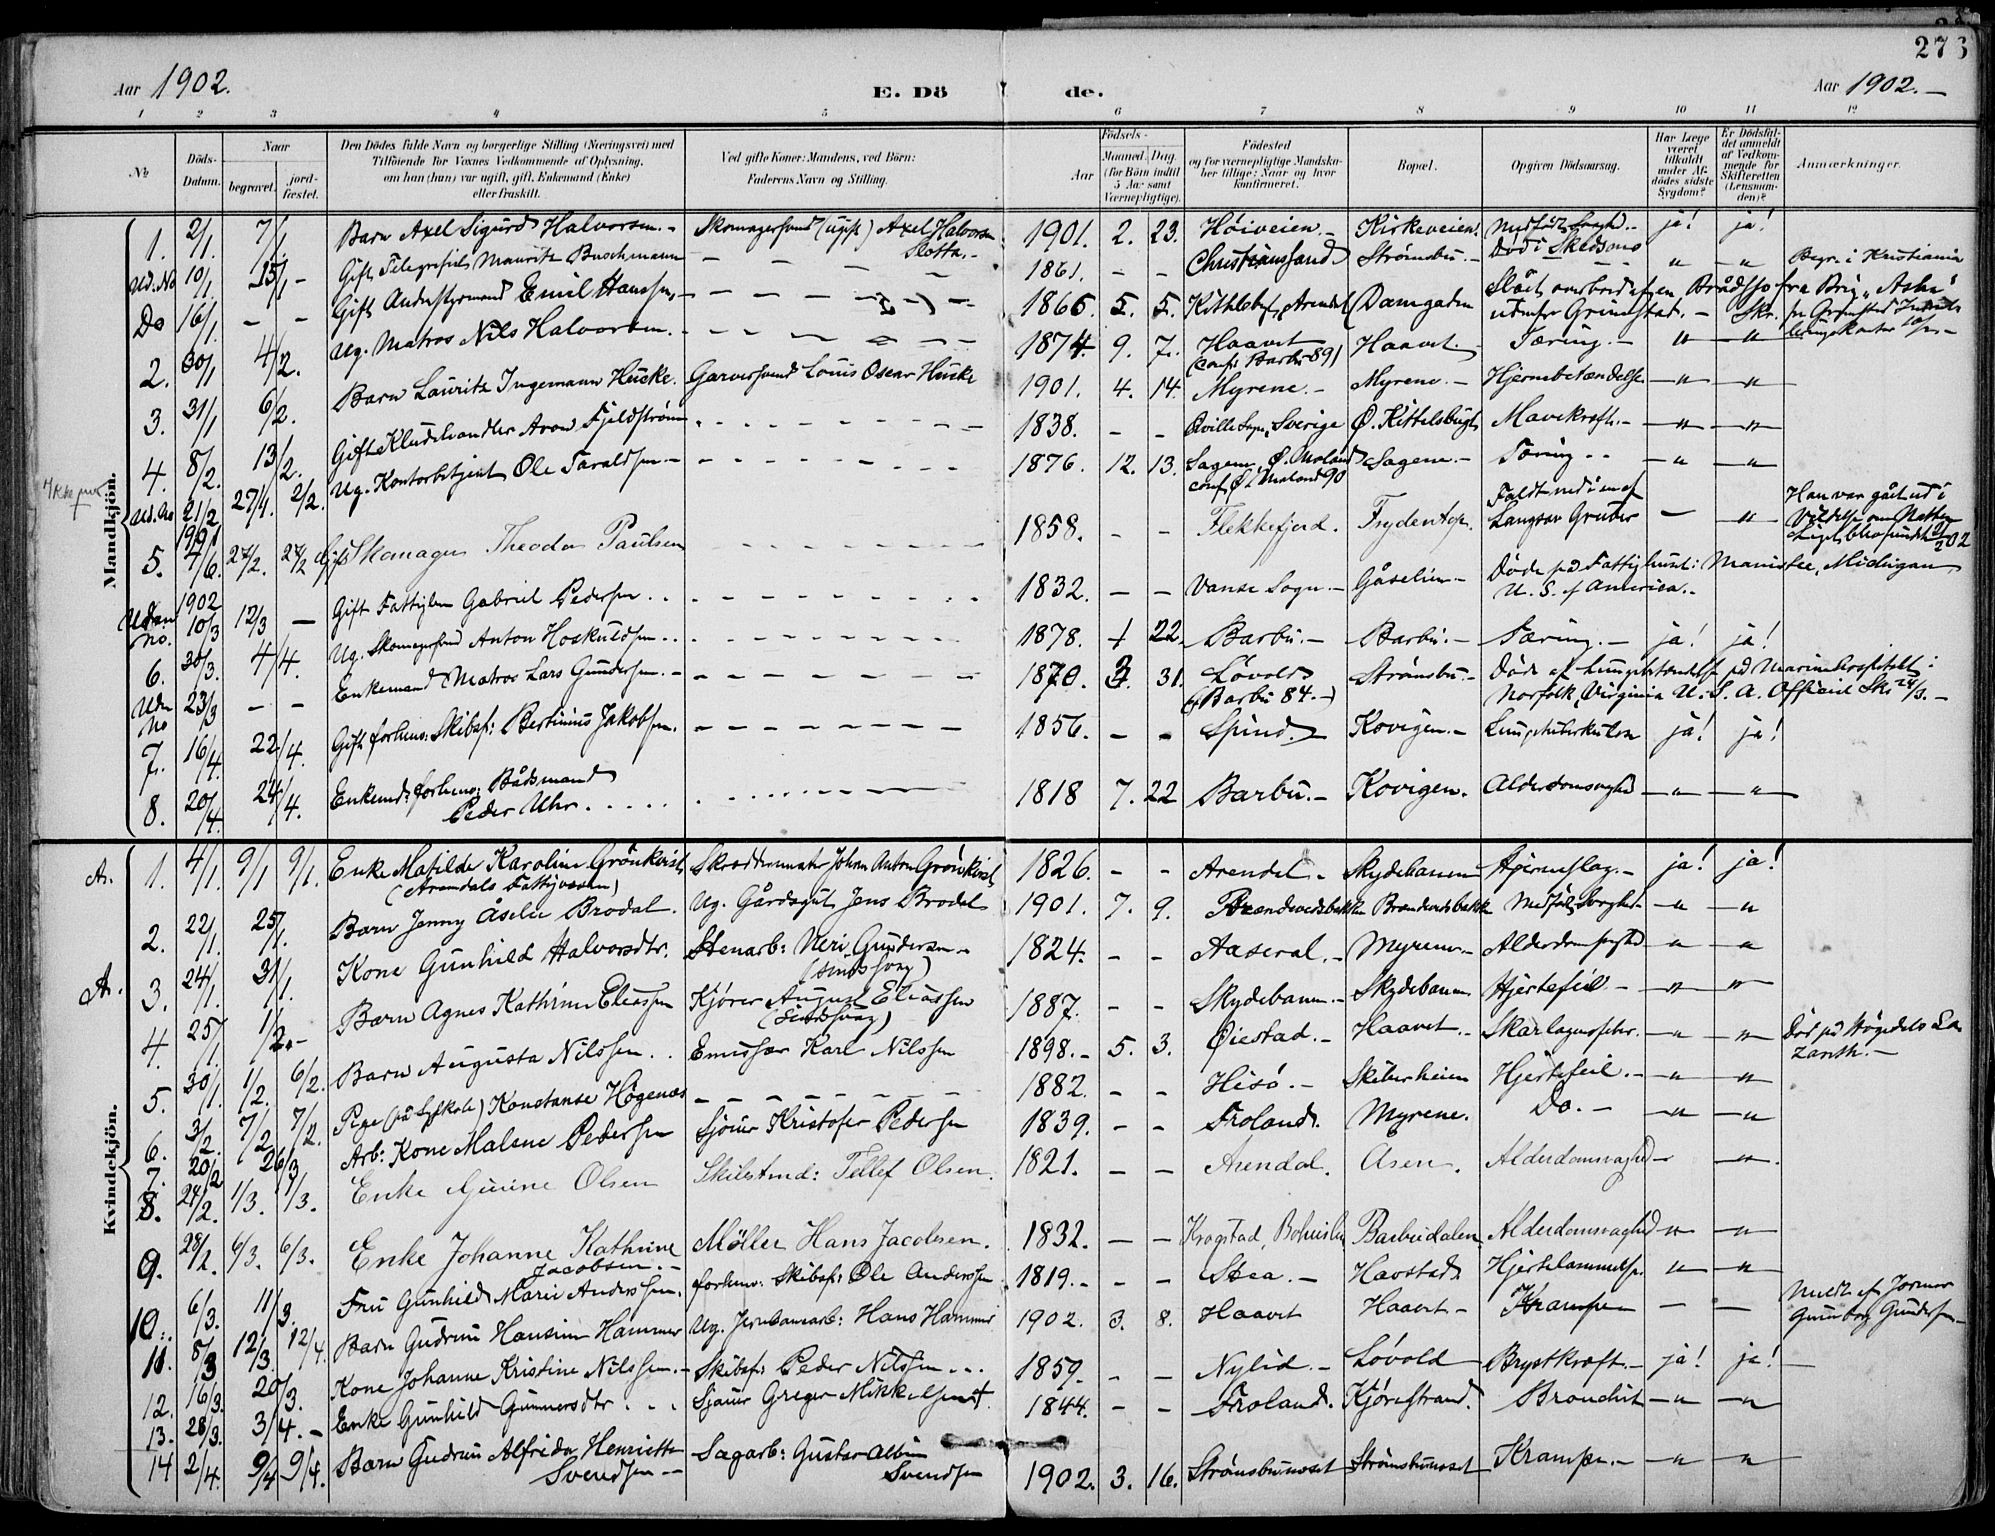 276
Aar 1902.
E. Dö de.
Aar 1902.
1 2 3 4 5 6 7 8 9 10 11 12
No
Döds-Datum.
Naar
begravet.
jord-fæstet.
Den Dödes fulde Navn og borgerlige Stilling (Næringsvei) med
Tilföiende for Voxnes Vedkommende af Oplysning,
om han (hun) var ugift, gift, Enkemand (Enke)
eller fraskilt.
Ved gifte Koner: Mandens, ved Börn:
Faderens Navn og Stilling.
Födsels-
Aar
Maaned. Dag.
(for Börn indtil
5 Aar samt
Værnepligtige).
Födested
og for værnepligtige Mandska-
ber tillige: Naar og hvor
konfirmeret.
Bopæl.
Opgiven Dödsaarsag.
Har Læge
været
tilkaldt
under Af-
dödes sidste
Sygdom?
Er Dödsfal-
det anmeldt
af Vedkom-
mende for
Skifteretten
(Lensman-
den)?
Anmærkninger.
Mandkjön.
1. 2/1. 7/1. Barn Axel Sigurd Halvorsen. Skomagersvend (ugift) Axel Halvorsen 1901. 2. 23. Höiveien. Kirkeveien. ja! ja!
Ud. No 10/1. 15/1 Gift Telegrafist Mauritz Buschmann 1861. Christianssand Strömsbu. Död i Skedsmo " " Begr. i Kristiania
Do 16/1. Gift Andenstyrmand Emil Hanssen 1866. 5. 5. Arendal Damgaden Slået overbord af en Brådsjö fra Brig "Aska"
udenfor Grimstad.
2. 30/1 4/2. Ug. Matros Nils Halvorsen. 1874. 9. 7. Haavet Haavet. Tæring. " "
3. 31/1 6/2. Barn Lauritz Ingemann Hucke. Garversvend Louis Oscar Hucke 1901. 4. 14. Myrene. Myrene. Hjernebetændelse " "
4. 8/2. 13/2. Gift Kludehandler Aron Fjeldström 1838. Sverige Ö. Kittelsbugt Mavekræft. " "
Ud. No 21/2 27/1. 2/2. Ug. Kontorbetjent Ole Taraldsen 1876. 12. 13. Sagene, Ö. Moland Sagene. Tæring " "
conf. Ö. Moland 90
5. 27/2. 27/2 Gift Skomager Theodor Paulsen 1858. Flekkefjord. Faldt ned i en af
Langsæ Gruber " Han var gået ud i
1902
Uden no. 10/3 12/3 Gift Fattiglem Gabriel Pedersen 1832. Vanse Sogn. Gåselien. Döde på Fattighuset i Manistee, Michigan
U. S. of America.
6. 30/3. 4/4. Ug. Skomagersvend Anton Hoskuldsen 1878. 22. Barbu. Barbu. Tæring. ja! ja!
Uden No 23/3 Enkemand Matros Lars Gundersen. 1870. 3. 31. Lövold Strömsbu. Döde af Lungebetændelse på Marinehospitalet i
(Barbu 84.) Norfolk, Virginia U. S. A.
7. 16/4. 22/4. Gift forhenv. Skibsf: Bertinius Jakobsen. 1856. Spind. Kovigen. Lungetuberkulose ja! ja!
8. 20/4. 24/4. Enkemd: forhenv: Bådsmand
Peder Uhr 1818 7. 22 Barbu. Kovigen. Alderdomssvaghed " "
Kvindekjön.
Ar. 1. 4/1. 9/1 9/1. Enke Matilde Karoline Grönkvist Skræddermester Johan Anton Grönkvist 1826. Arendal. Skydebanen Hjerneslag. ja! ja!
(Arendals Fattigvæsen)
2. 22/1. 25/1. Barn Jenny Åselie Brodal. Ug. Gårdsgut Jens Brodal 1901. 7. 9. Brændevedsbakken Brændevedsbakk Medfödt Svaghed " "
Ar. 3. 24/1. 31/1. Kone Gunhild Halvorsdtr. Stenarb: Neri Gundersen 1824. Aaseral. Myrene. Alderdomssvaghed " "
(sindssvag)
4. 25/1. 1/2. Barn Agnes Kathrine Eliassen Kjörer August Eliassen 1887. Skydebanen. Skydebanen Hjertefeil " "
(Sindssvag)
5. 30/1. 1/2. 6/2. Barn Augusta Nilssen. Karl Nilssen 1898. 5. 3. Öiestad. Haavet. Skarlagensfeber. " " Död på Högedals La-
zareth.
6. 3/2. 7/2 7/2. Pige (på Sykole) Konstanse Högenæs 1882. Hisö. Skiberheien Hjertefeil. " "
7. 20/2 26/3. Arb: Kone Malene Pedersen Sjöuer Kristofer Pedersen 1839. Froland. Myrene. Do. " "
8. 24/2. 1/3. 1/3. Enke Gurine Olsen Tellef Olsen. 1821. Arendal. Åsen. Alderdomssvaghed "
9. 28/2. 6/3. 6/3. Enke Johanne Kathrine
Jacobsen. Möller Hans Jacobsen. 1832. Krogstad, Bohuslen Barbudalen Alderdomssvaghed " "
10. 6/3. 11/3. Fru Gunhild Marie Anderssen. forhenv: Skibsf: Ole Anderssen 1819. Stea. Havstad. Hjertelammelse. " "
11. 8/3 12/3. 12/4. Barn Gudrun Hansine Hammer Ug. Jernbanearb: Hans Hammer 1902. 3. 8. Haavet Haavet Krampe Meldt af Jormor
Gunborg Gundersen
12. 16/3. 20/3. Kone Johanne Kristine Nilssen. Skibsf: Peder Nilssen 1859. Nylid. Lövold Brystkræft. ja! ja!
13. 28/3. 3/4. Enke Gunhild Gunnersdtr Sjöuer Greger Mikkelsen 1844. Froland. Kjörestrand. Bronchit " "
14 2/4. 9/4 9/4. Barn Gudrun Alfrida Henriette
Svendsen Sagarb: Gustav Albin
Svendsen 1902. 3. 16. Strömsbunæset Strömsbunæset Krampe. " "